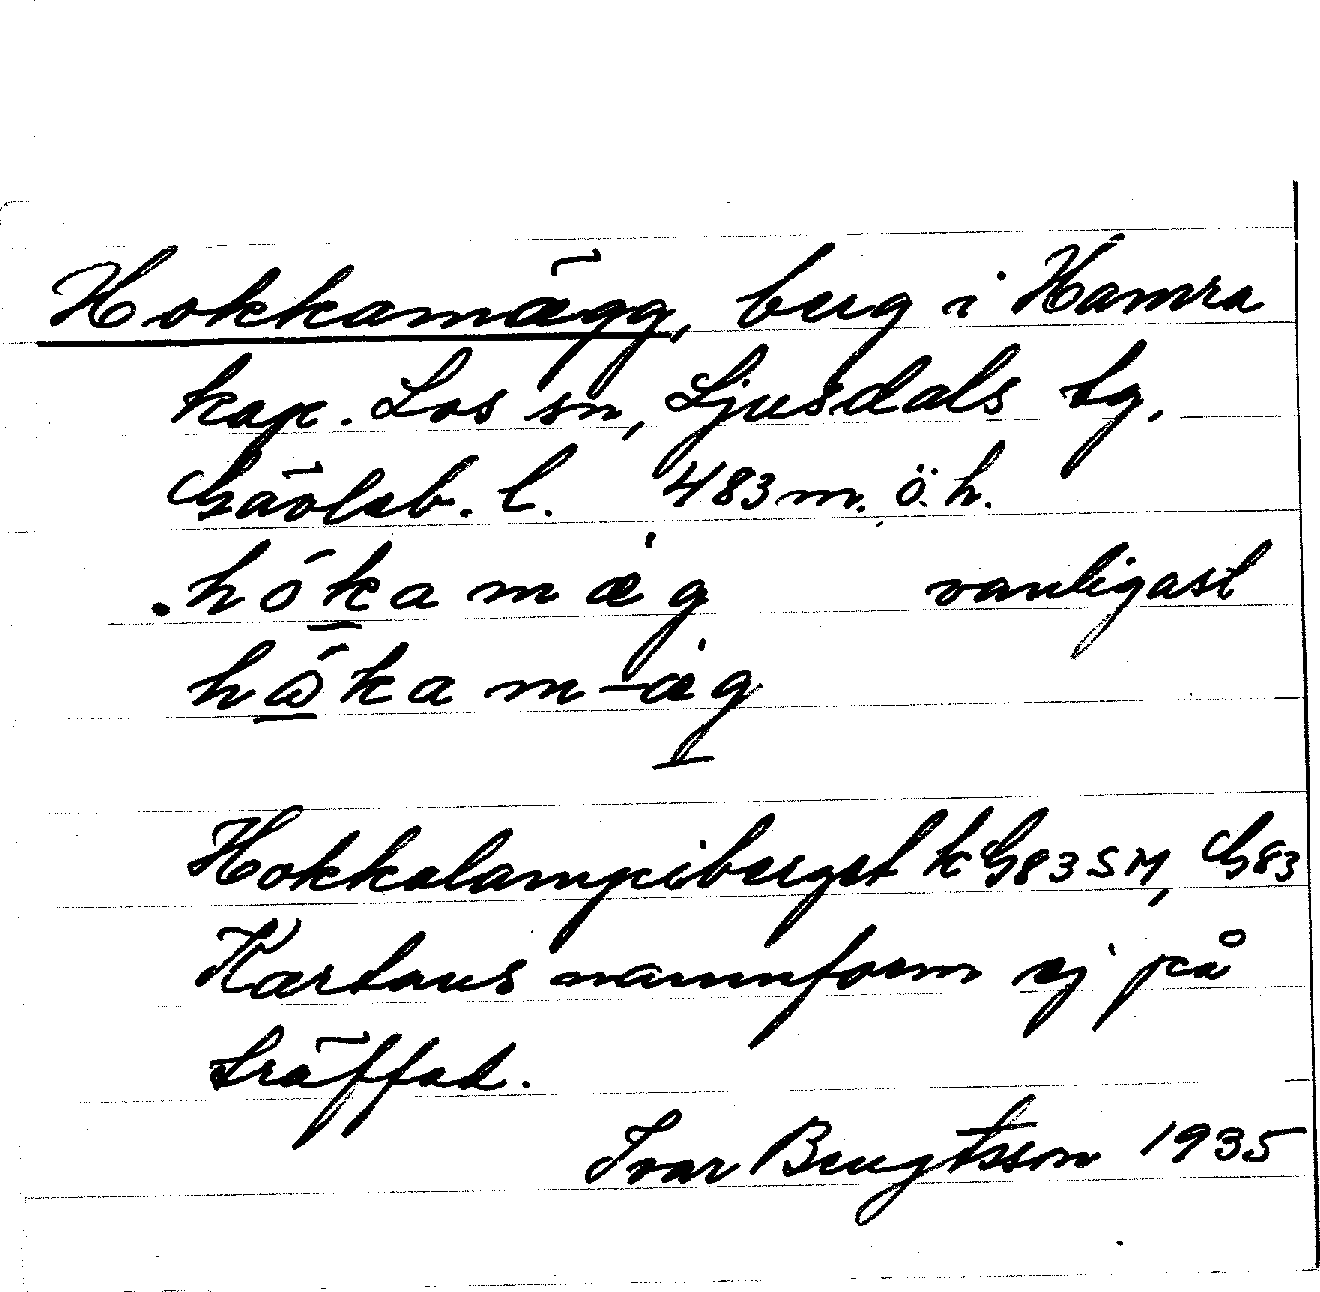 Hokkamägg, berg i Hamra
kap. Los sn, Ljusdals tg,
Gävleb. l. 483 m. ö. h.
hókamæ̀g vanligast
hǻkam-æ̀g
Hokkalampiberget k G83 SM, G83
Kartans namnform ej på
träffad.
Ivar Bengtsson 1935